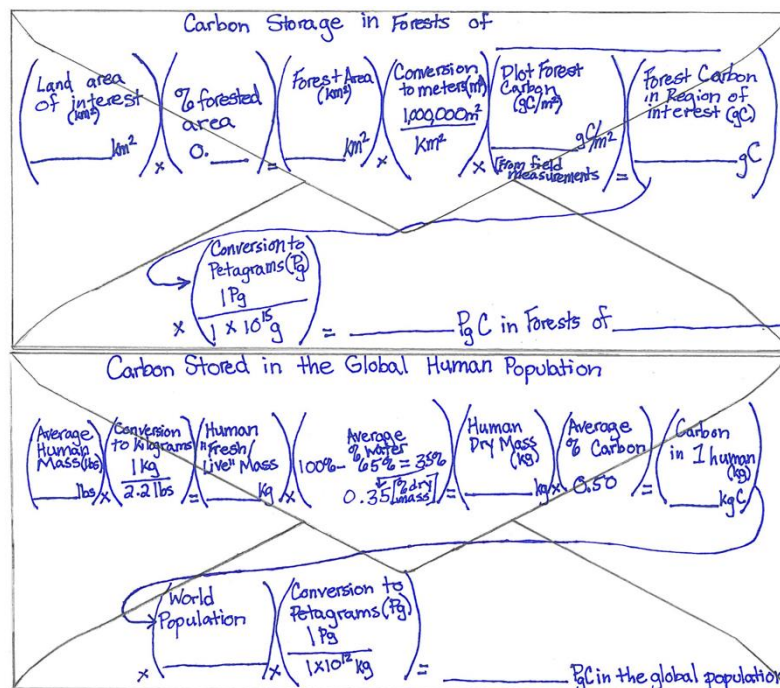 Carbon Storage in Forests of
Land area of interest (km²) ______ km²
×
% forested area 0.___
=
Forest Area (km²) ______ km²
×
Conversion to meters (m²) 1,000,000 m² / km²
×
Plot Forest Carbon (gC/m²) ______ gC/m² [From field measurements
=
Forest Carbon in Region of interest (gC) ______ gC
×
Conversion to Petagrams (Pg) 1 Pg / 1 × 10¹⁵ g
= ______ Pg C in Forests of ______
Carbon Stored in the Global Human Population
Average Human Mass (lbs) ____ lbs
×
Conversion to Kilograms 1 kg / 2.2 lbs
=
Human "Fresh/Live" Mass ____ kg
×
Average % water 100% - 65% = 35% 0.35 [% dry mass]
=
Human Dry Mass (kg) ____ kg
×
Average % Carbon 0.50
=
Carbon in 1 human (kg) ____ kgC
×
World Population ______
×
Conversion to Petagrams (Pg) 1 Pg / 1×10¹² kg
= ______ PgC in the global population